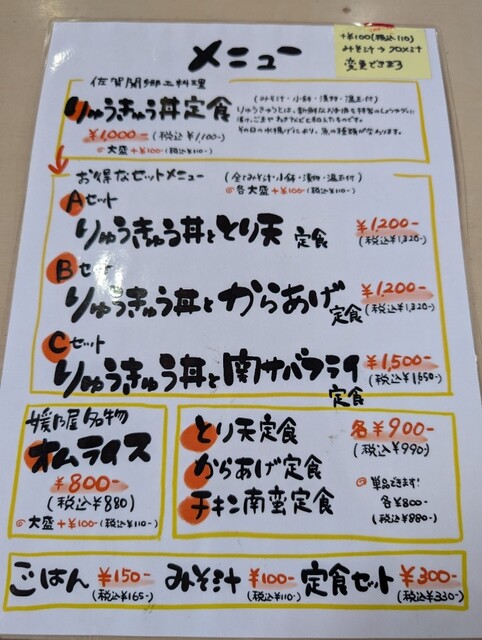 メニュー
+¥100(税込110)
みそ汁→クロメ汁
変更できます
佐賀関郷土料理
りゅうきゅう丼定食
(みそ汁・小鉢・漬物・温玉付)
りゅうきゅうとは、新鮮なお魚を特製のしょうゆダレに
漬け、ごまやねぎなどと和えたものです。
その日の水揚げにより、魚の種類が変わります。
¥1,000-(税込¥1,100-)
◎大盛+¥100-(税込¥110-)
お得なセットメニュー
(全てみそ汁・小鉢・漬物・温玉付)
◎各大盛+¥100-(税込¥110-)
Aセット
りゅうきゅう丼ととり天定食
¥1,200-
(税込¥1,320-)
Bセット
りゅうきゅう丼とからあげ定食
¥1,200-
(税込¥1,320-)
Cセット
りゅうきゅう丼と関サバフライ定食
¥1,500-
(税込¥1,650-)
名物
オムライス
¥800-
(税込¥880)
◎大盛+¥100-(税込¥110-)
とり天定食
からあげ定食
チキン南蛮定食
各¥900-
(税込¥990-)
◎単品できます!
各¥800-
(税込¥880-)
ごはん ¥150-
(税込¥165-)
みそ汁 ¥100-
(税込¥110-)
定食セット ¥300-
(税込¥330-)